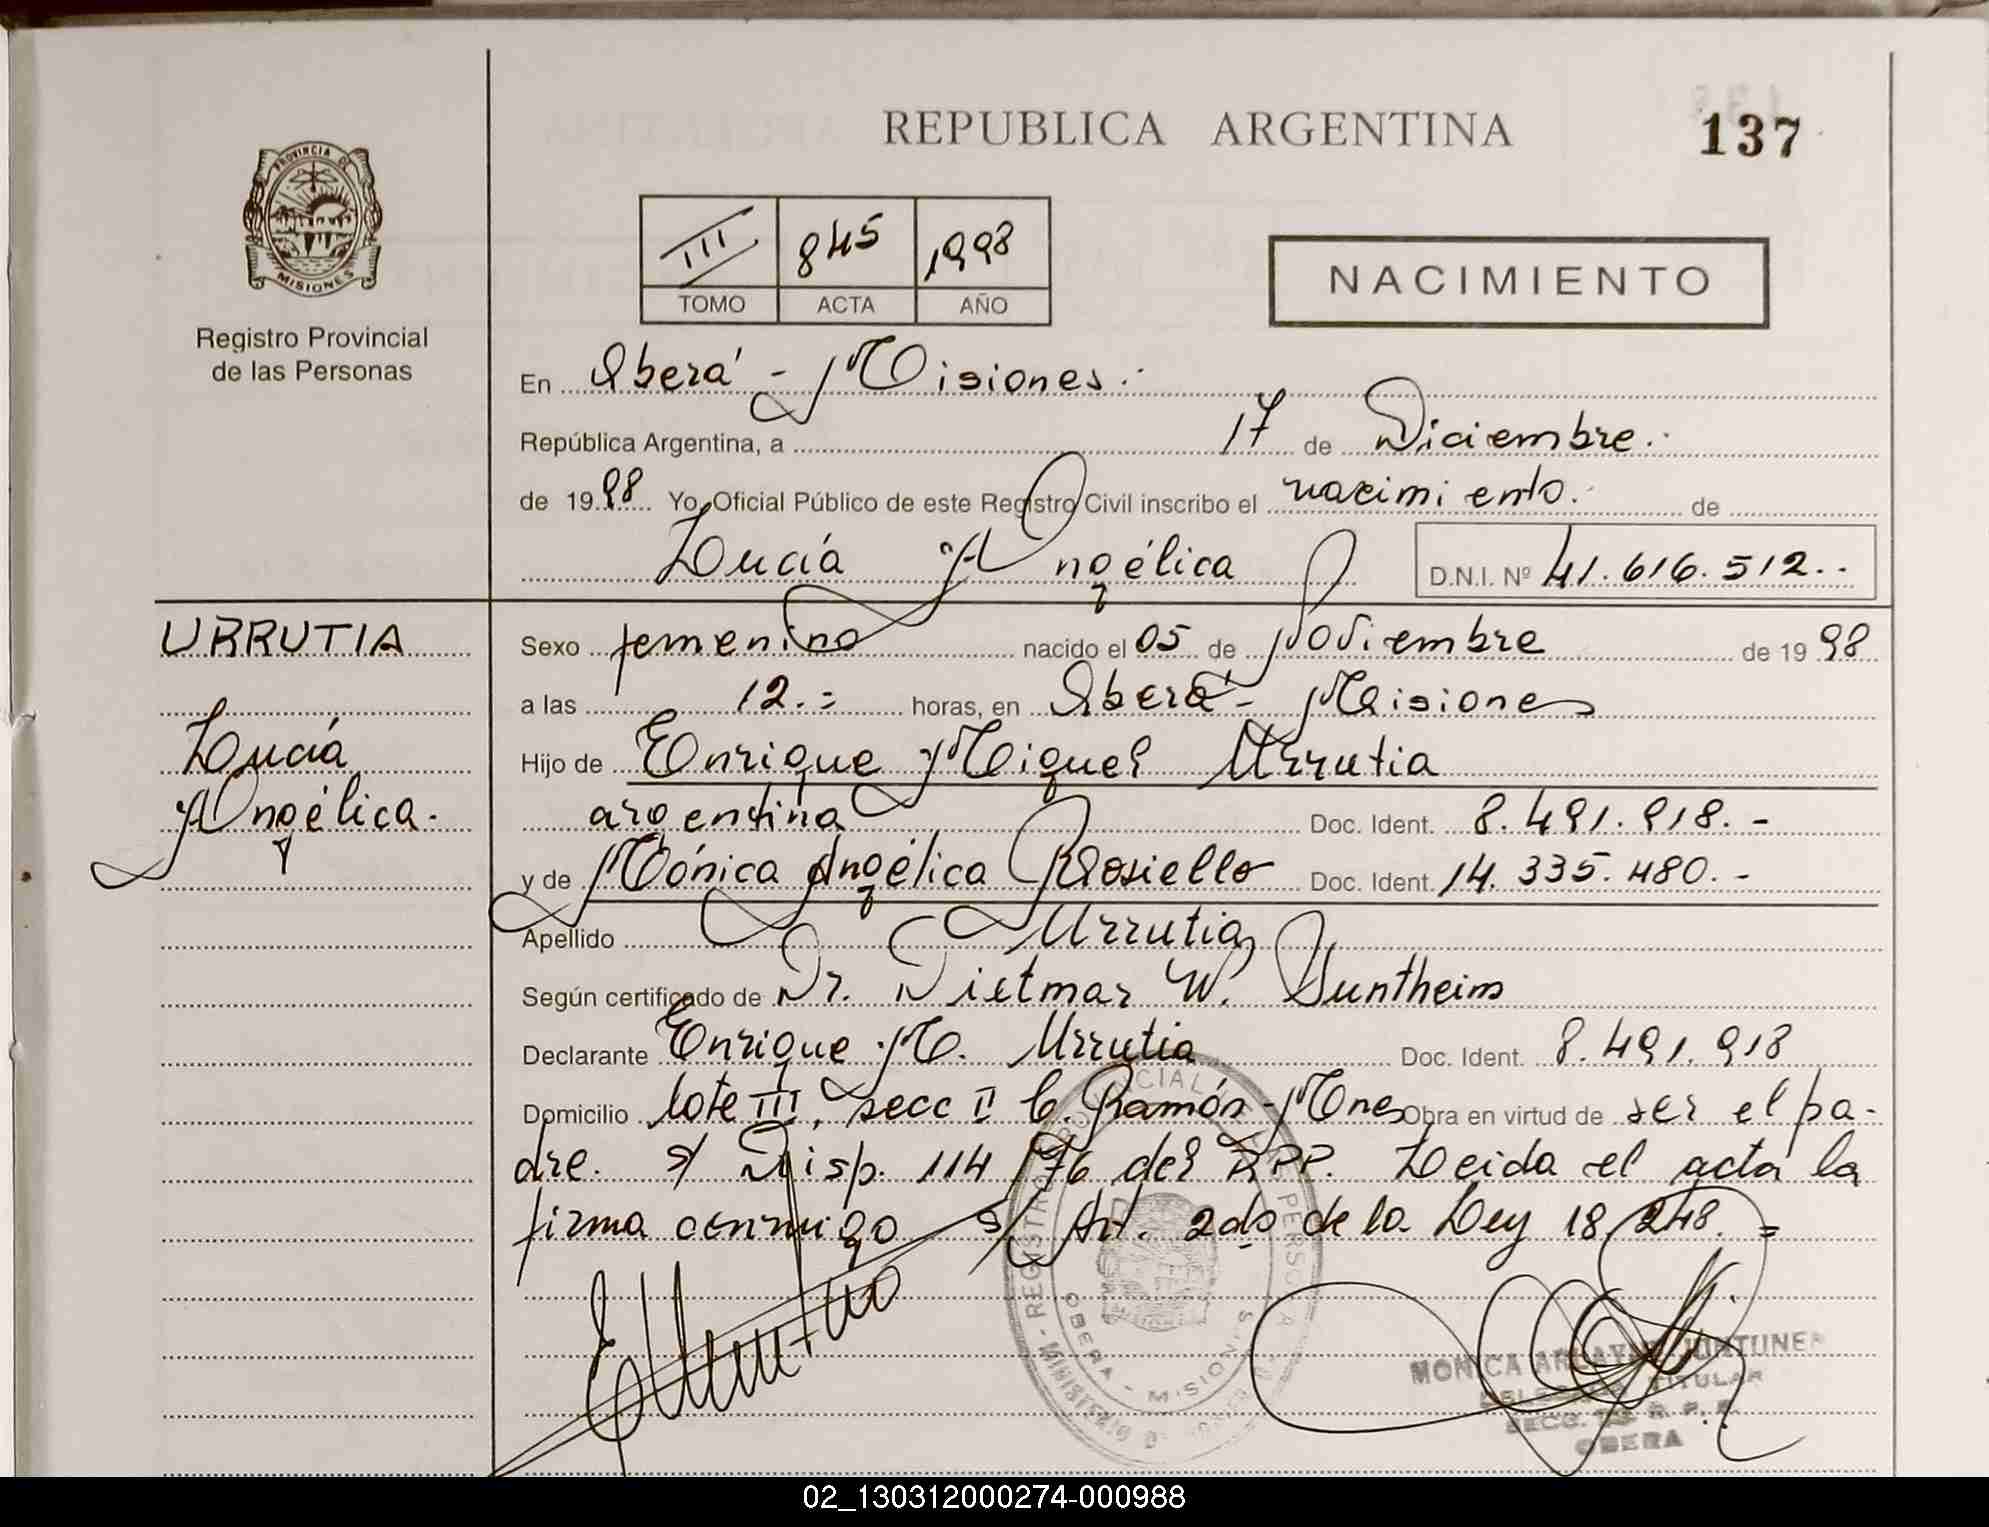 REPUBLICA ARGENTINA
137
PROVINCIA DE
MISIONES
Registro Provincial
de las Personas
III 845 1998
TOMO ACTA AÑO
NACIMIENTO
En Oberá - Misiones.
República Argentina, a 17 de Diciembre.
de 1998 Yo, Oficial Público de este Registro Civil inscribo el nacimiento. de
Lucía Angélica D.N.I. Nº 41.616.512.-
URRUTIA
Lucía
Angélica.
Sexo femenino nacido el 05 de Noviembre de 1998
a las 12.= horas, en Oberá - Misiones
Hijo de Enrique Miguel Urrutia
argentina Doc. Ident. 8.491.918.-
y de Mónica Angélica Rosiello Doc. Ident. 14.335.480.-
Apellido Urrutia
Según certificado de Dr. Dietmar W.
Declarante Enrique M. Urrutia Doc. Ident. 8.491.918
Domicilio lote III, secc II C. Ramón - Mnes Obra en virtud de ser el pa-
dre. s/ Disp. 114/76 del RPP. Leida el acta la
firma conmigo s/ Art. 2do de la Ley 18.248.=
OBERA - MISIONES
MONICA
TITULAR
OBERA
02_130312000274-000988